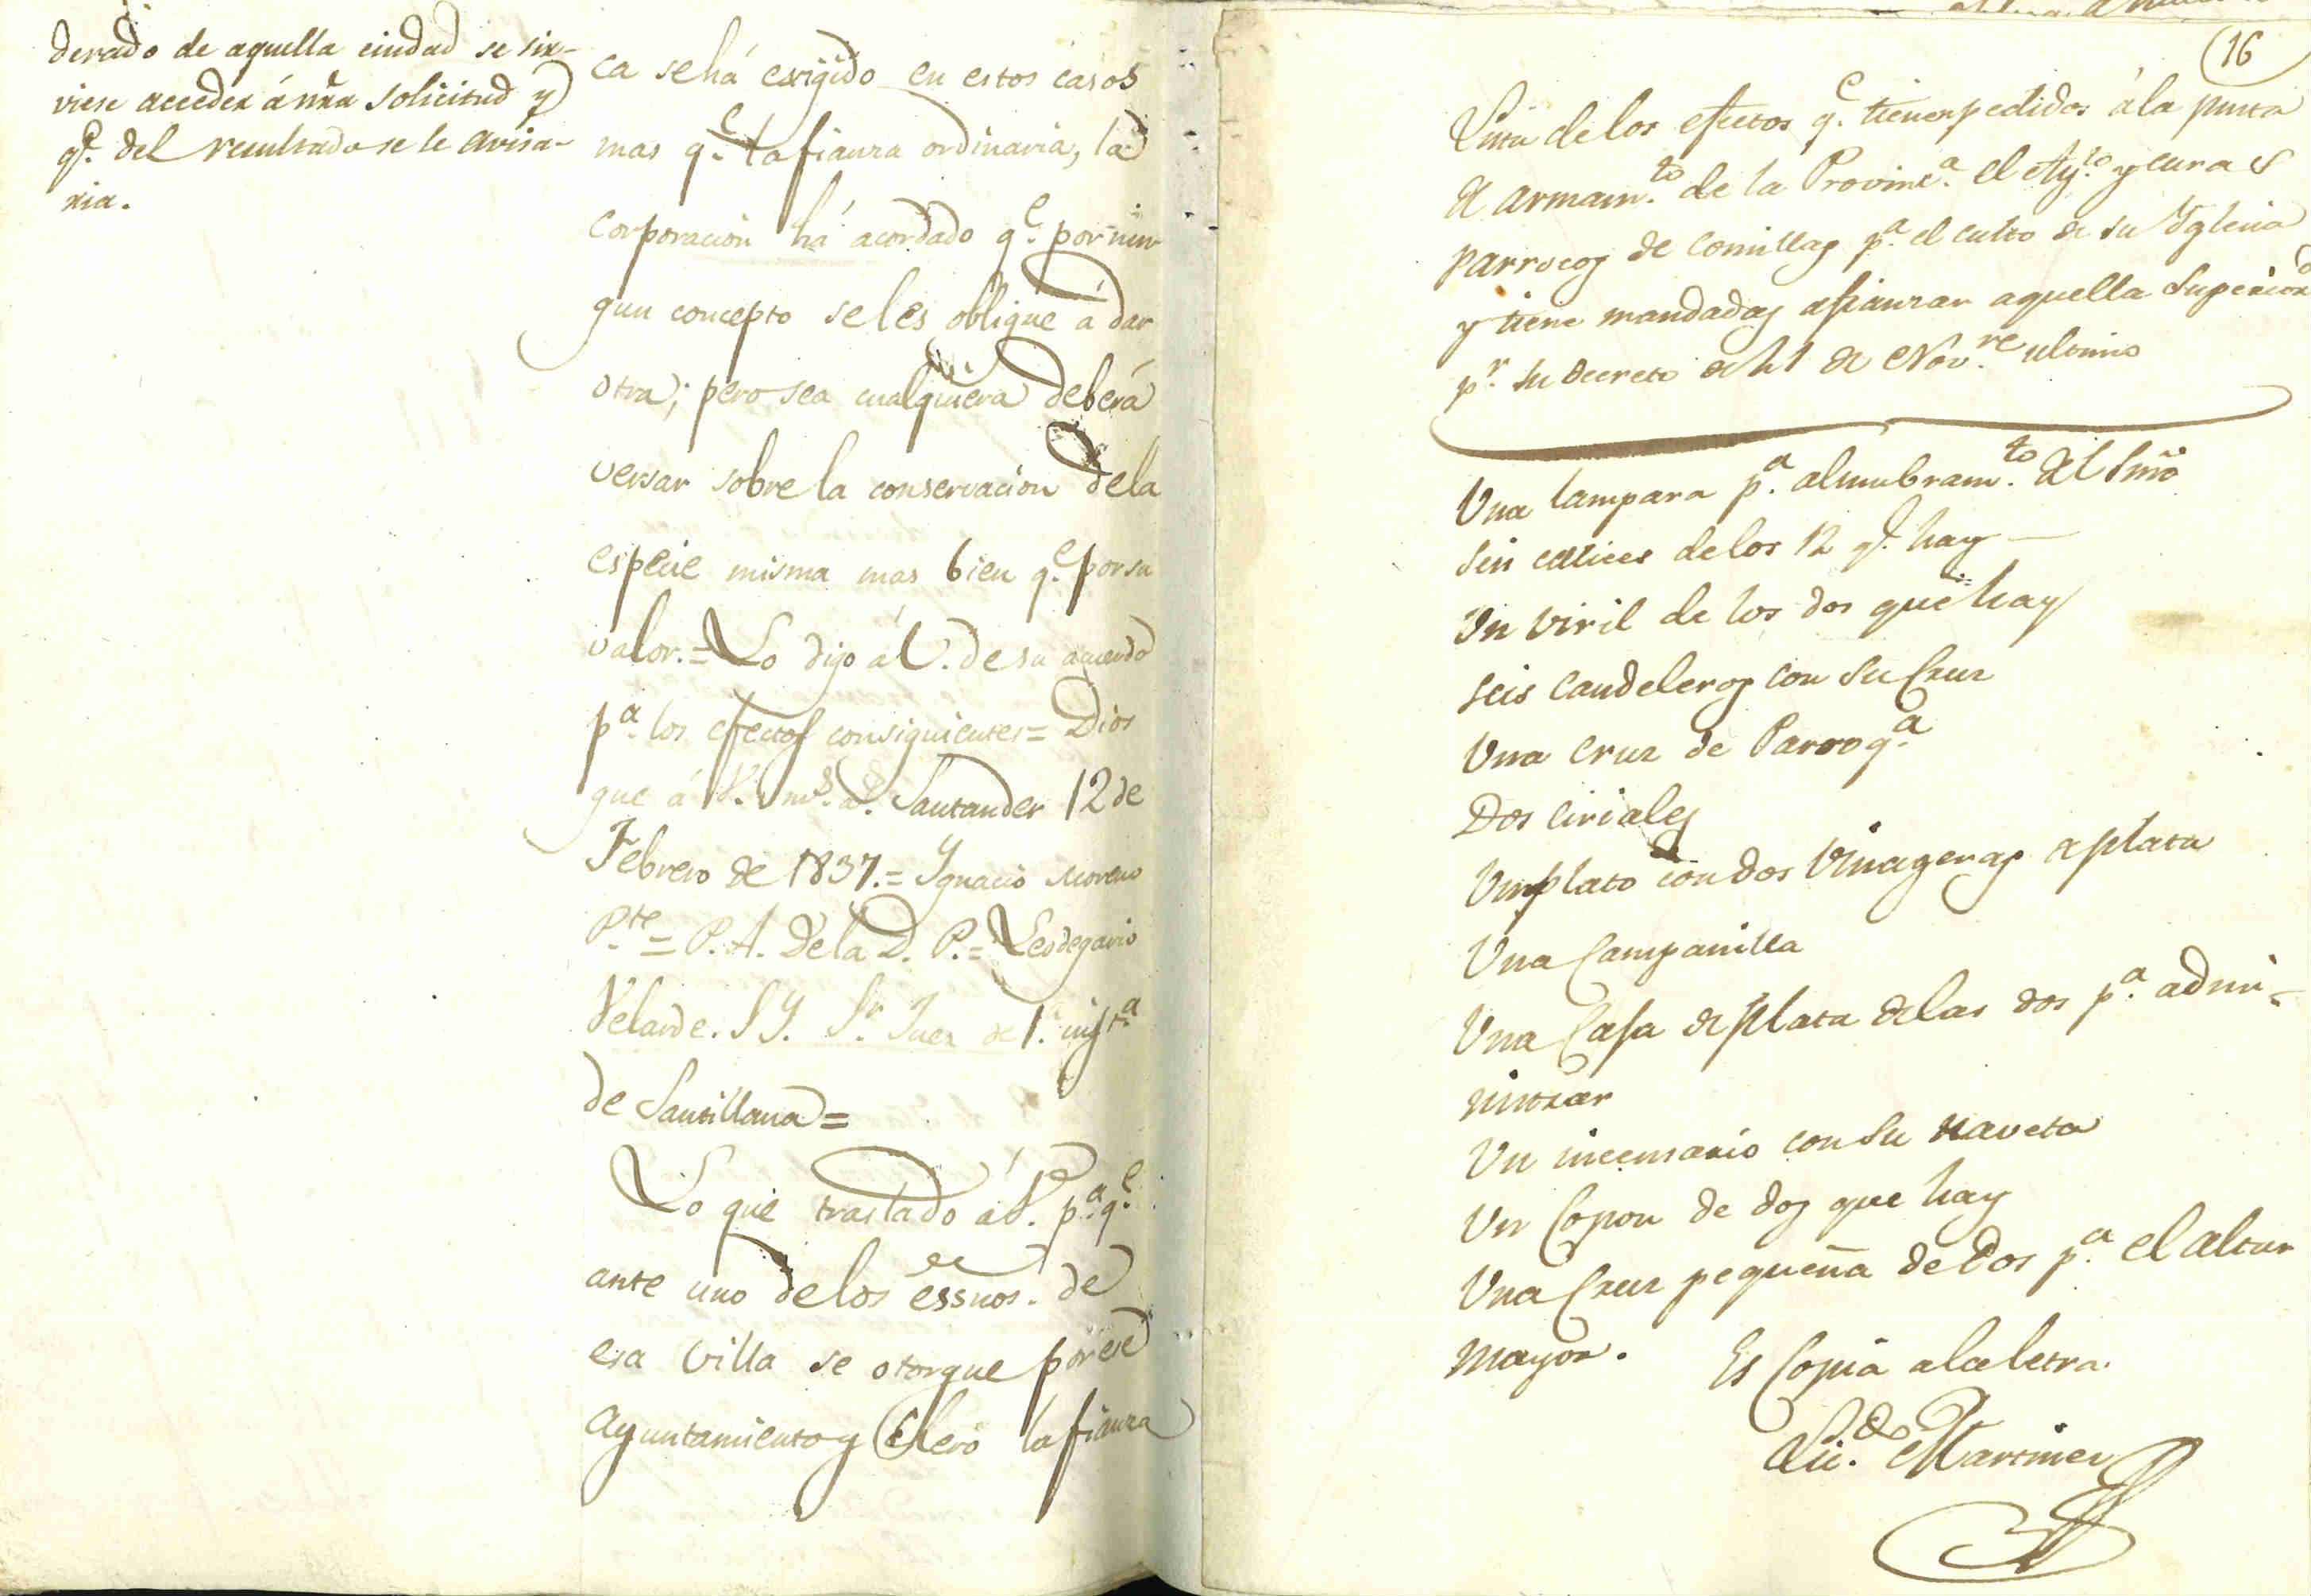 derado de aquella ciudad se sir-
viese acceder á nrã solicitud y
qe. del resultado se le avisa-
ria.
ca se há exigido en estos casos
mas qe. la fianza ordinaria, la
corporacion há acordado qe. por nin-
gun concepto se les obligue á dar
otra; pero sea cualquiera deberá
versar sobre la conservacion de la
especie misma mas bien qe. por su
valor.= Lo dijo á V. de su acuerdo
pa. los efectos consiguientes= Dios
gue á V. ms. as. Santander 12 de
Febrero de 1837.= Ygnacio Moreno
Pte.= P. A. De la D. P.= Leodegario
Velarde. S Y. Sr. Juez de 1a. insta
de Santillana=
Lo que traslado á V. pa. qe.
ante uno de los essnos. de
esa Villa se otorgue por ese
Ayuntamiento y Clero la fianza
16
Lista de los efectos qe. tienen pedidos á la junta
de armamto. de la Provinca. el Ayto. y curas
parrocos de Comillas pa. el culto de su Yglesia
y tiene mandadas afianzar aquella Superiord
pr. su decreto de 21 de Novre. ultimo
Una lampara pa. alumbramto. del Smõ
Seis calices de los 12 qe. hay
Un viril de los dos que hay
Seis candeleros con su Cruz
Una cruz de Parroqa.
Dos ciriales
Un plato con dos vinageras de plata
Una Campanilla
Una Caja de plata de las dos pa. admi-
nistrar
Un incensario con su naveta
Un Copon de dos que hay
Una Cruz pequeña de dos pa. el altar
mayor.
Es Copia a la letra.
Licdo. Martinez